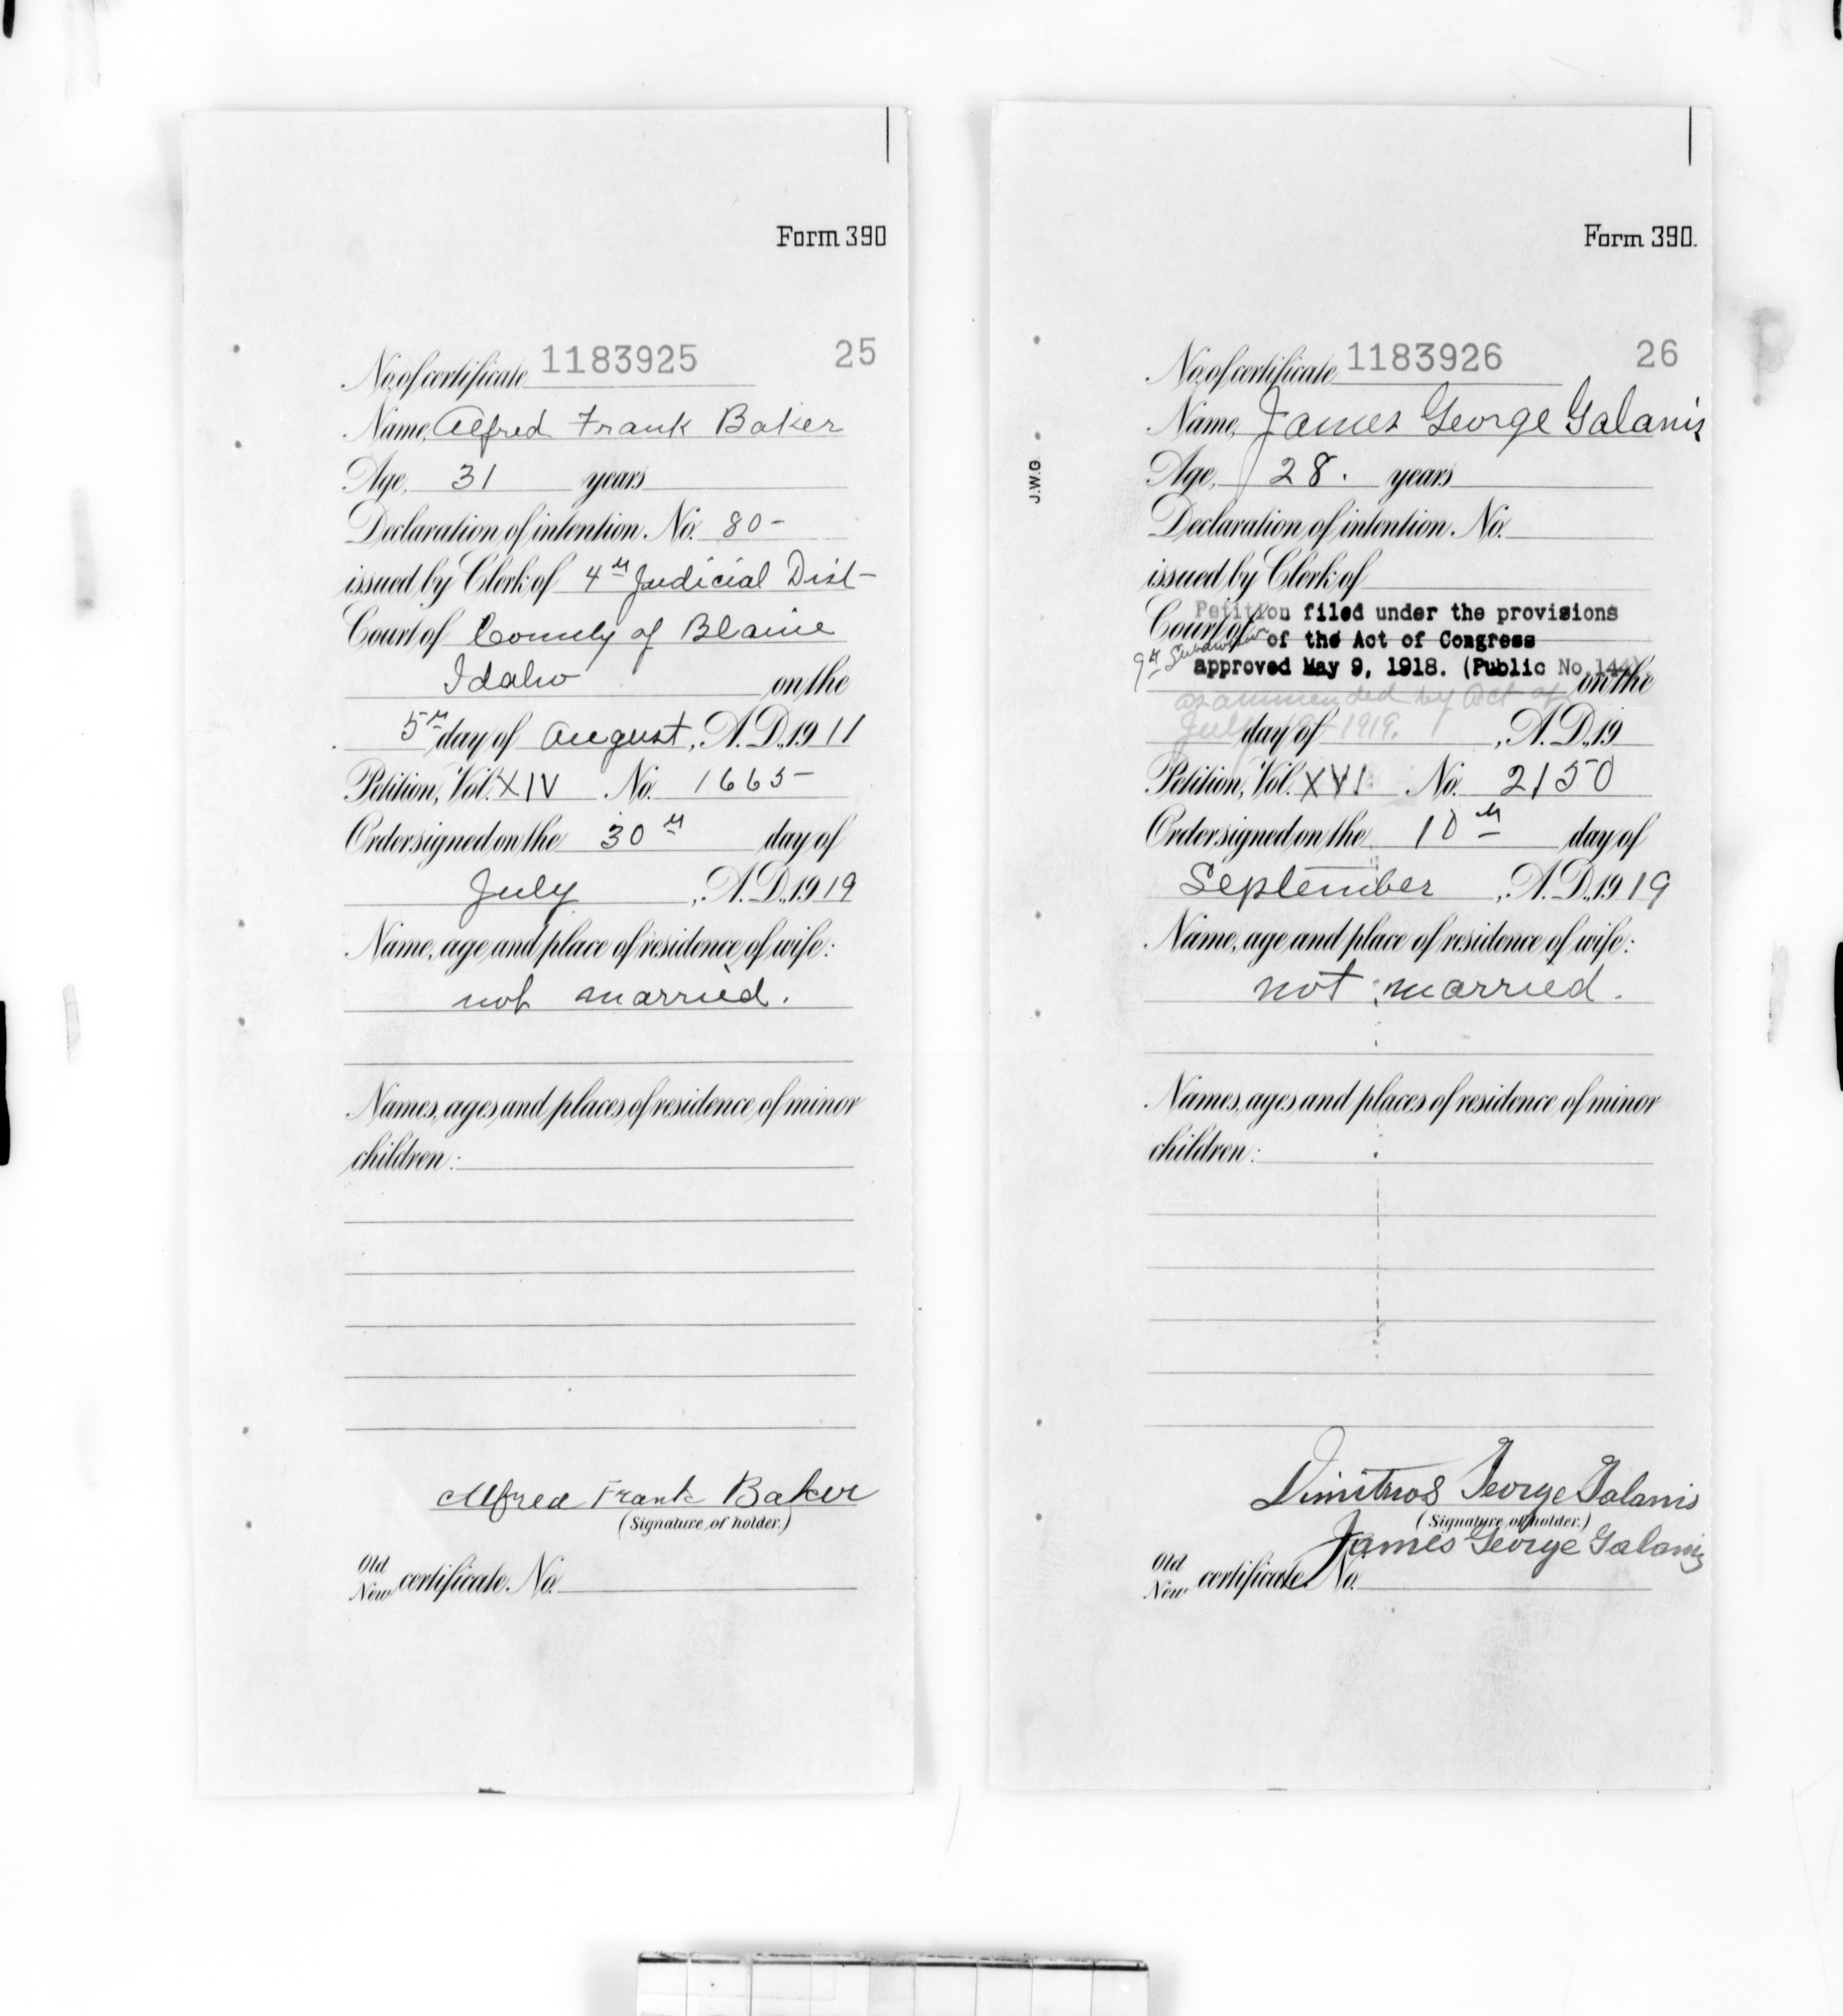 Form 390
No. of certificate 1183925 25
Name, Alfred Frank Baker
Age, 31 years
Declaration of intention, No. 80-
issued by Clerk of 4th Judicial Dist-
Court of County of Blaine
Idaho on the
5th day of August, A.D., 1911
Petition, Vol. XIV No. 1665-
Order signed on the 30th day of
July, A.D., 1919
Name, age and place of residence of wife:
not married.
Names, ages and places of residence of minor
children:
Alfred Frank Baker
(Signature of holder.)
Old
New certificate No.
Form 390.
J.W.G.
No. of certificate 1183926 26
Name, James George Galanis
Age, 28. years
Declaration of intention, No.
issued by Clerk of
Petition filed under the provisions
Court of of the Act of Congress
9th Subdivision
approved May 9, 1918. (Public No. 144)
on the
as ammended by Act of
July 19-1919.
day of , A.D., 19
Petition, Vol. XVI No. 2150
Order signed on the 10th day of
September, A.D., 1919
Name, age and place of residence of wife:
not married.
Names, ages and places of residence of minor
children:
Dimitrios George Galanis
(Signature of holder.)
James George Galanis
Old
New certificate No.